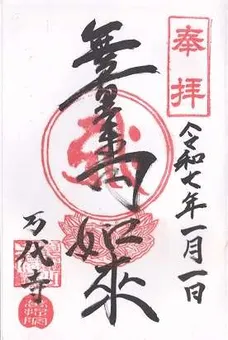 奉拝
令和七年一月一日
無量寿如来
万代寺